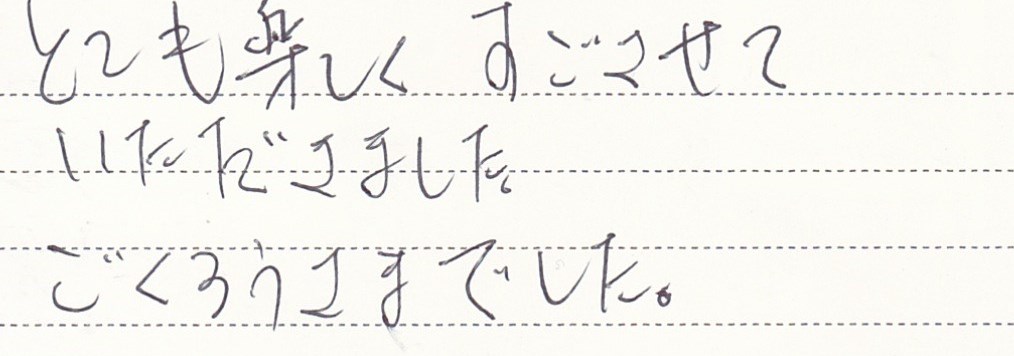 とても楽しく すごさせて
いただきました。
ごくろうさまでした。